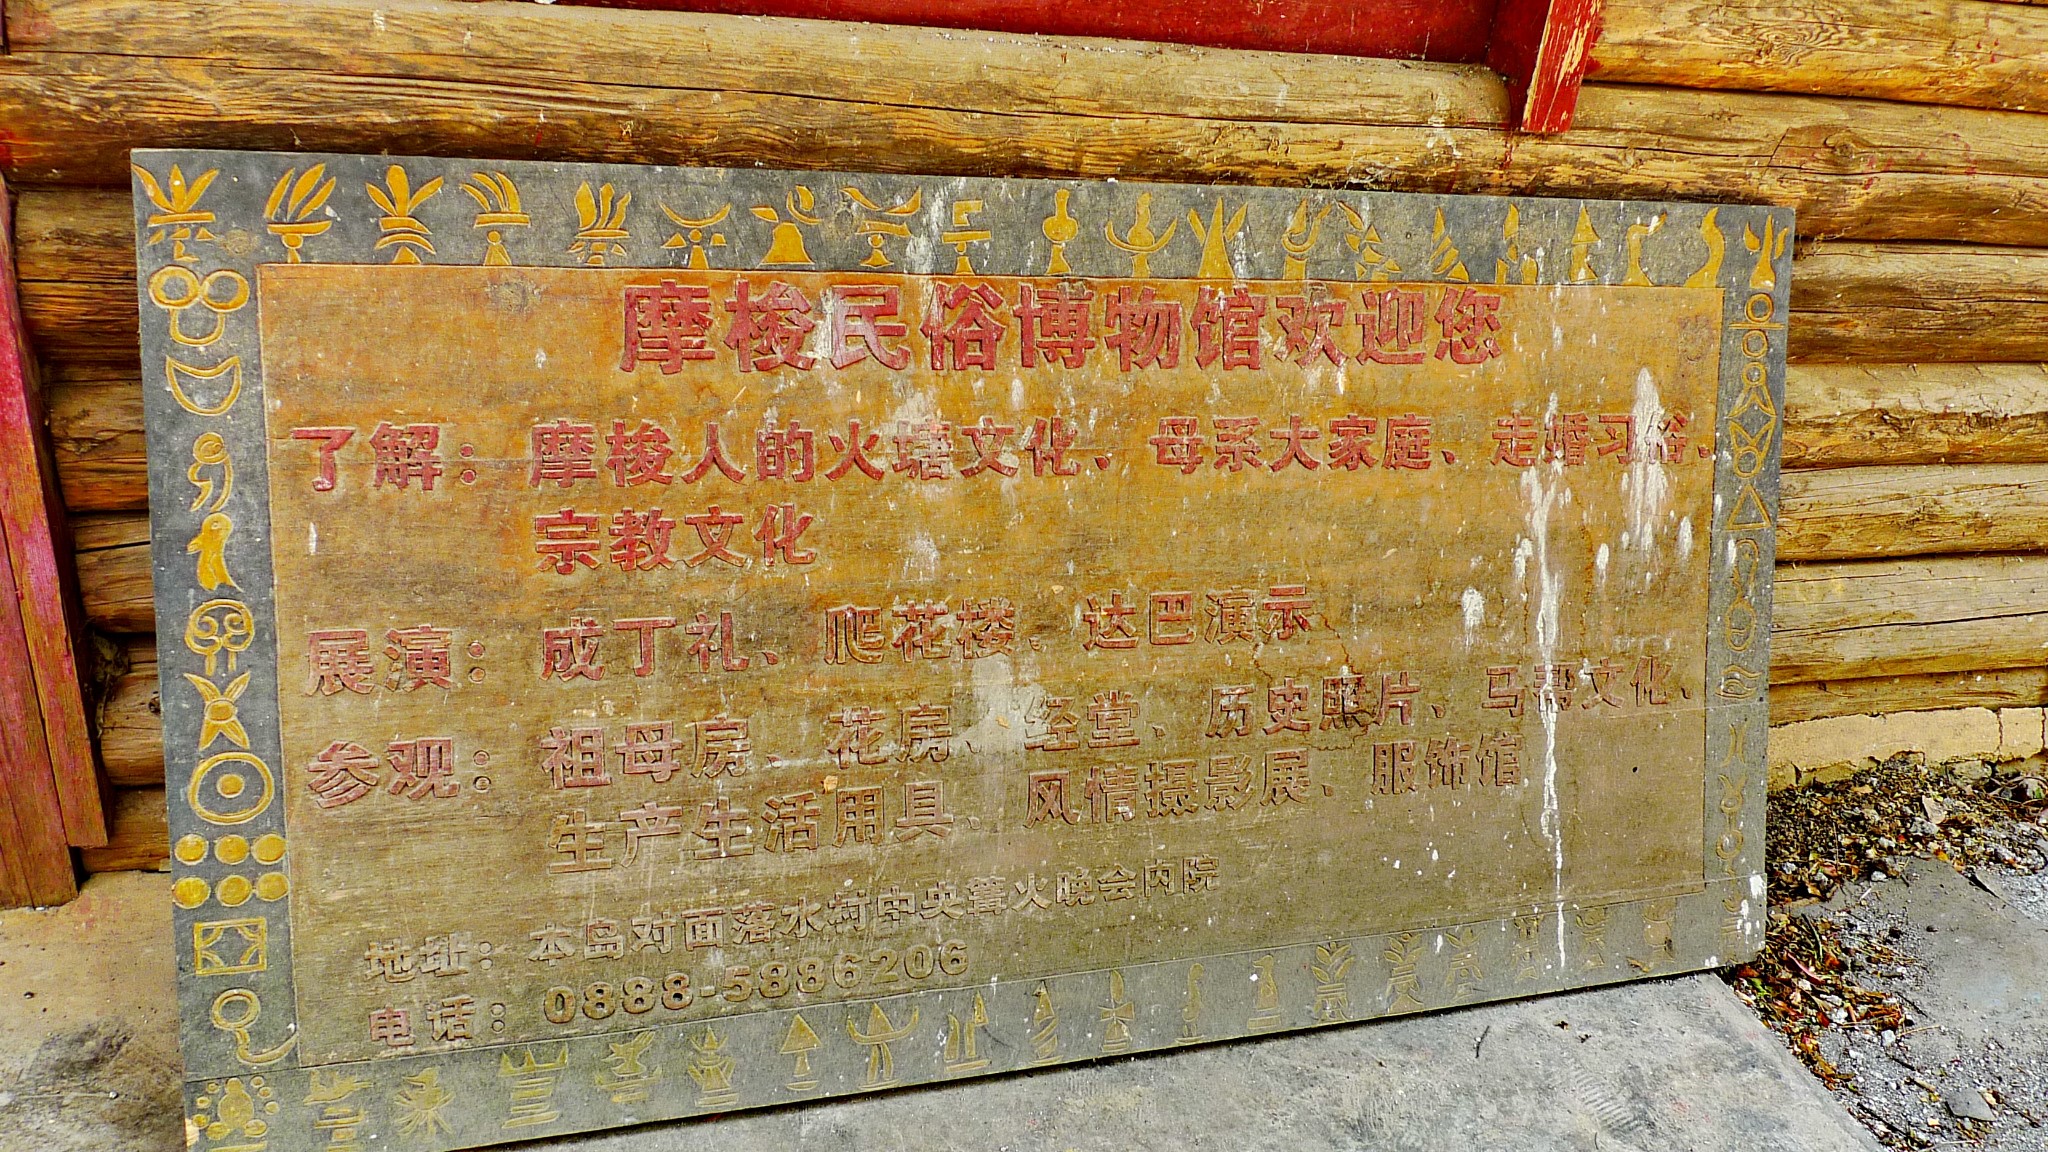 摩梭民俗博物馆欢迎您
了解：摩梭人的火塘文化、母系大家庭、走婚习俗、
宗教文化
展演：成丁礼、爬花楼、达巴演示
参观：祖母房、花房、经堂、历史照片、马帮文化、
生产生活用具、风情摄影展、服饰馆
地址：本岛对面落水村中央篝火晚会内院
电话：0888-5886206